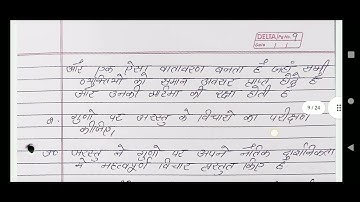 DELTA Pg No. 9
Date / /
और एक ऐसा वातावरण बनता है जहां सभी
व्यक्तियों को समान अवसर प्राप्त होते हैं
और उनकी गरिमा की रक्षा होती है
9 / 24
प्र. गुणों पर अरस्तु के विचारों का परीक्षण
कीजिए।
उ० अरस्तु ने गुणों पर अपने नैतिक दार्शनिकता
में महत्वपूर्ण विचार प्रस्तुत किए हैं